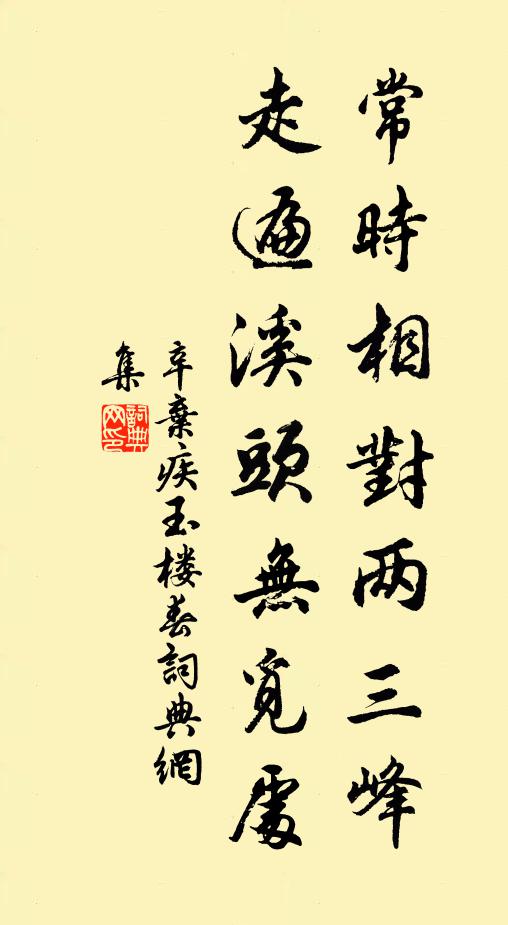 常時相對兩三峰
走遍溪頭無覓處
辛棄疾玉楼春詞典網
集
詞典
网印